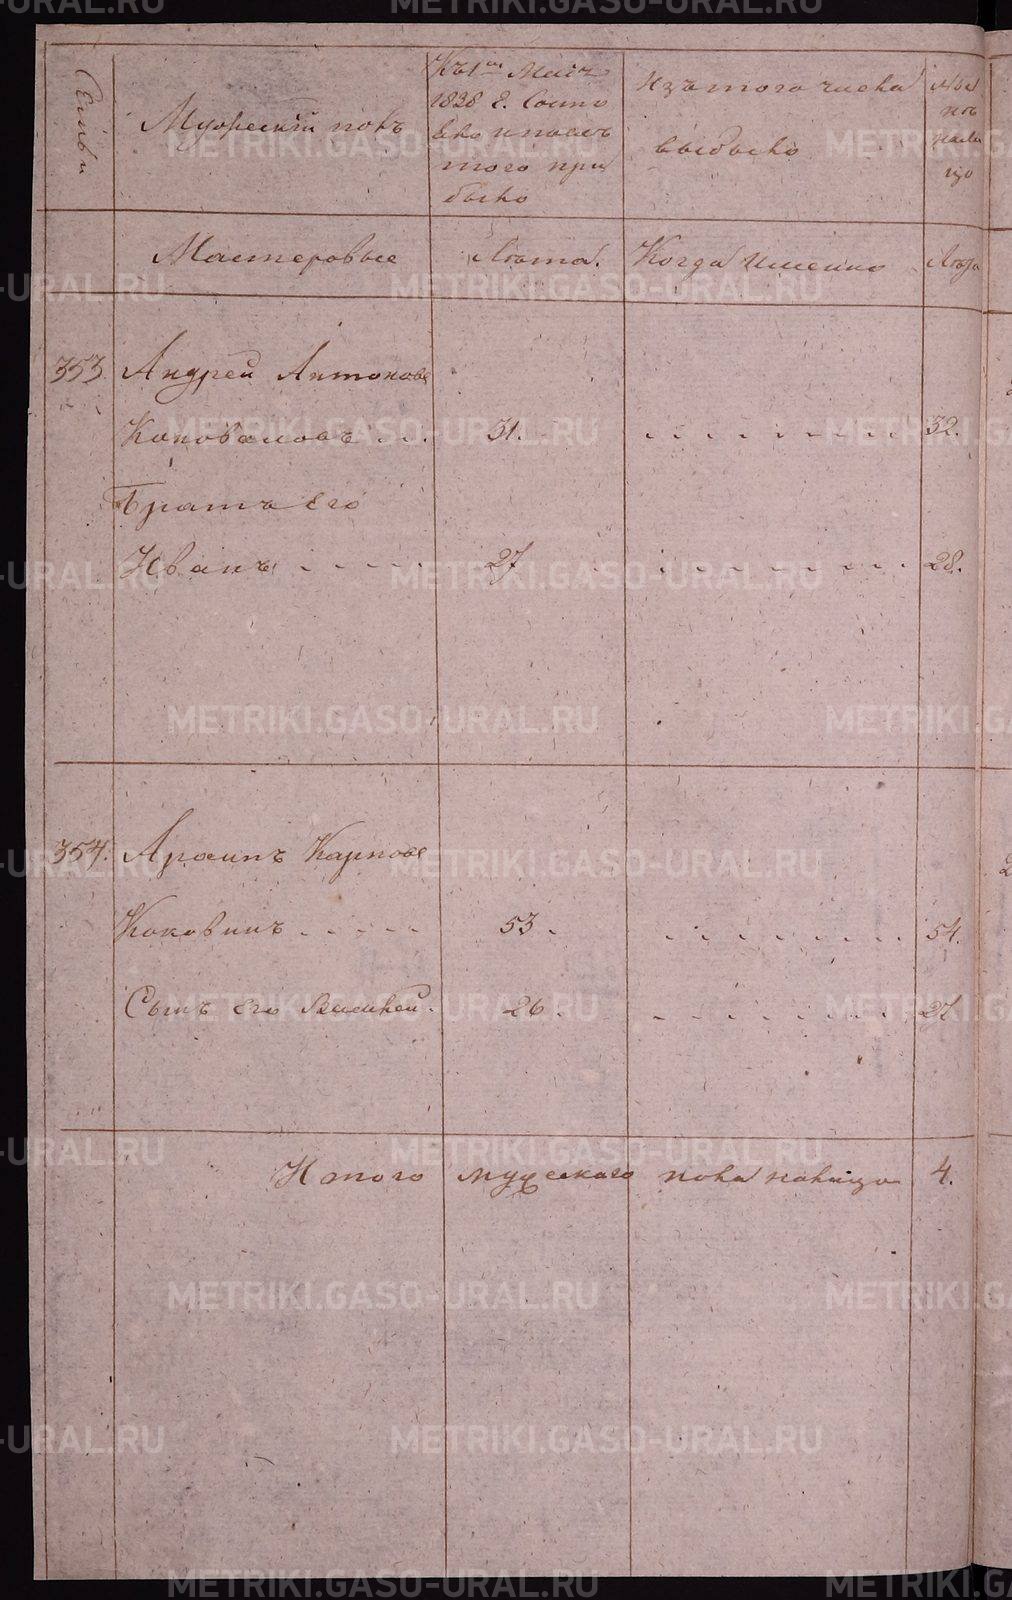 Семьи
Мужескiй полъ
Къ 1му Маiя
1828 г. Состо
яло и послѣ
того при
было
Изъ того числа
выбыло
Ны
нѣ
нали
цо
Мастеровые
Лѣта.
Когда именно
Лѣта
353. Андрей Антоновъ
Коновалов ъ 31. 32.
Братъ его
Иванъ 27 28.
354. Карповъ
Коковинъ 53. 54.
Сынъ его 26. 27
Итого мужескаго пола налицо 4.
METRIKI.GASO-URAL.RU